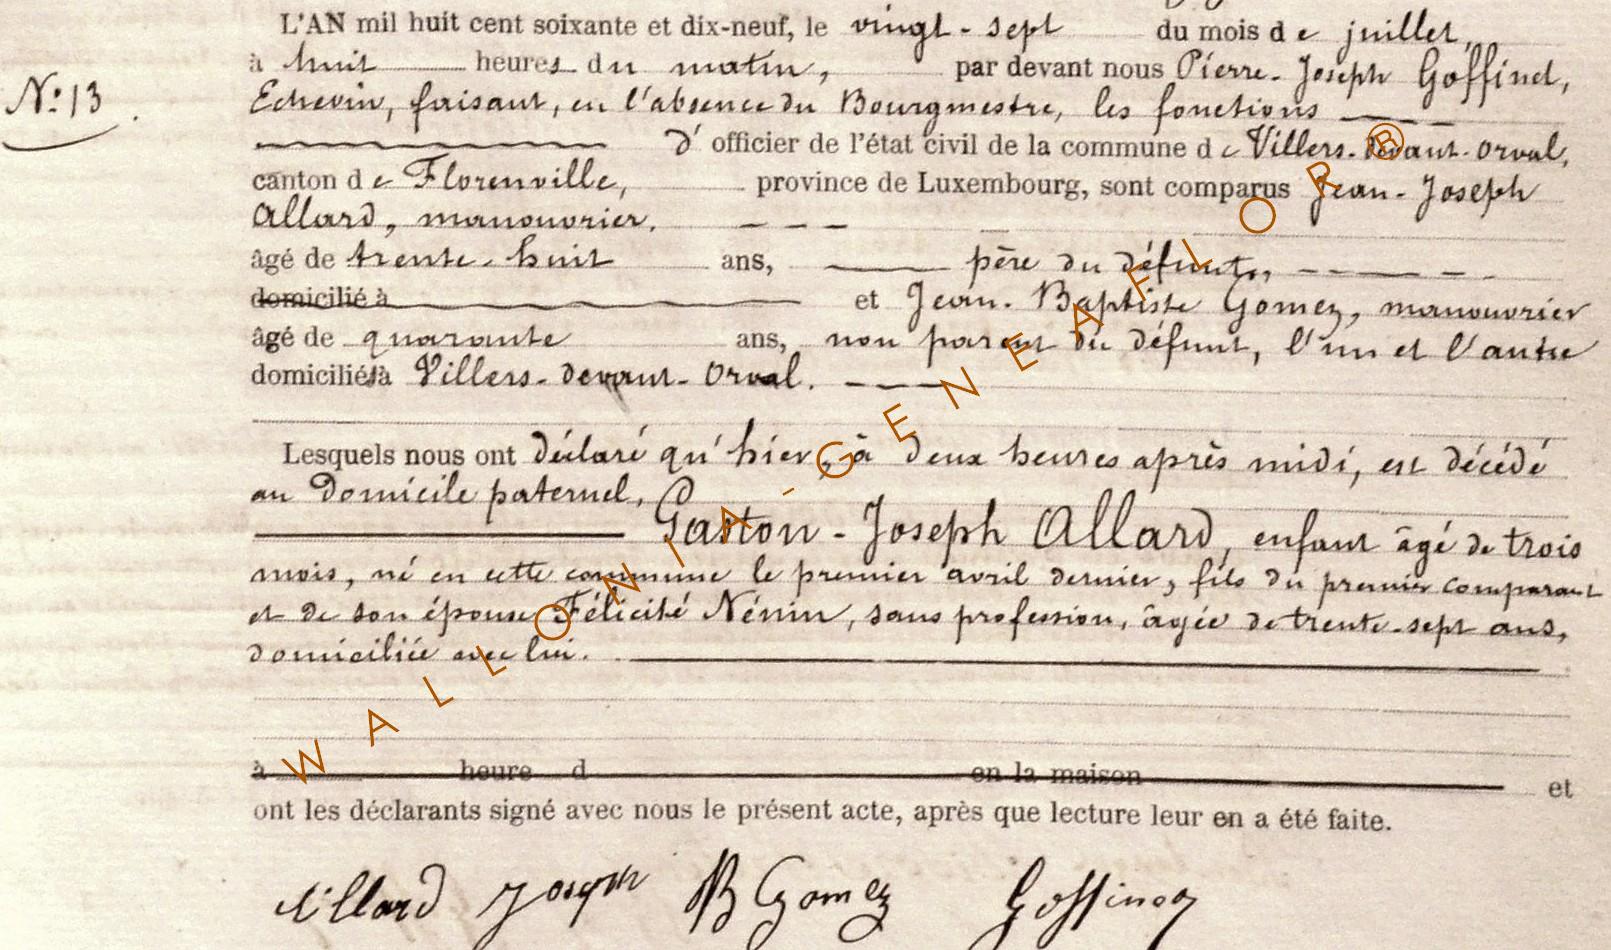 L'AN mil huit cent soixante et dix-neuf, le vingt-sept du mois de juillet,
à huit heures du matin, par devant nous Pierre-Joseph Goffinet,
N° 13
Echevin, faisant, en l'absence du Bourgmestre, les fonctions
d'officier de l'état civil de la commune de Villers-devant-Orval,
canton de Florenville, province de Luxembourg, sont comparus Jean-Joseph
Allard, manouvrier.
âgé de trente-huit ans, père du défunt,
domicilié à et Jean-Baptiste Gomez, manouvrier
âgé de quarante ans, non parent du défunt, l'un et l'autre
domiciliés à Villers-devant-Orval.
Lesquels nous ont déclaré qu'hier, à deux heures après midi, est décédé
au domicile paternel,
Gaston-Joseph Allard, enfant âgé de trois
mois, né en cette commune le premier avril dernier, fils du premier comparant
et de son épouse Félicité Nénin, sans profession, âgée de trente-sept ans,
domiciliée avec lui.
à heure d en la maison et
ont les déclarants signé avec nous le présent acte, après que lecture leur en a été faite.
Allard Joseph JB Gomez Goffinet
WALLONIA-GENEAFLOR®